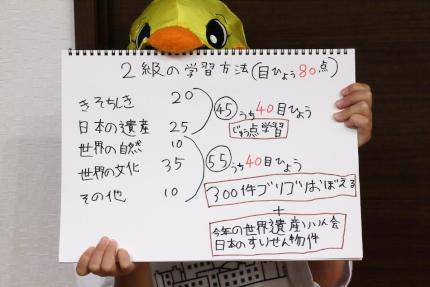 2級の学習方法(目ひょう80点)
きそちしき 20
日本の遺産 25
世界の自然 10
世界の文化 35
その他 10
45 うち40目ひょう
じゅう点学習
55 うち40目ひょう
300件ゴリゴリおぼえる
+
今年の世界遺産いい会
日本のすいせん物件